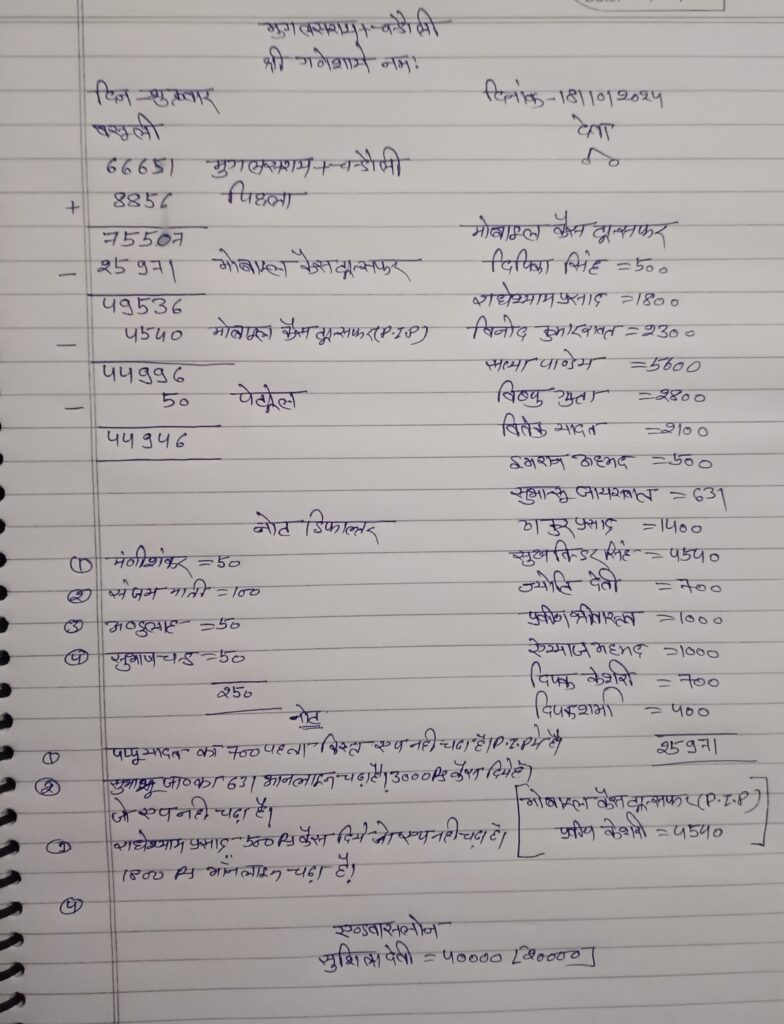 मुगलसराय + चन्दौली
श्री गणेशाय नमः
दिन - शुक्रवार
दिनांक - 18/10/2024
वसूली
देना
66651 मुगलसराय + चन्दौली
+ 8856 पिछला
75507
- 25971 मोबाइल कैस ट्रान्सफर
49536
- 4540 मोबाइल कैस ट्रान्सफर (P.I.P)
44996
- 50 पेट्रोल
44946
मोबाइल कैस ट्रान्सफर
दिपिका सिंह = 500
राधेश्याम प्रसाद = 1800
विनोद कुमार रावत = 2300
सत्या पाण्डेय = 5600
विष्णु गुप्ता = 2800
विवेक यादव = 2100
इमरान अहमद = 500
सुभान्सू जायसवाल = 631
ठाकुर प्रसाद = 1400
सुखविन्डर सिंह = 4540
ज्योति देवी = 700
प्रवीण श्रीवास्तव = 1000
अहमद = 1000
दिपक केशरी = 700
दिपक शर्मा = 400
25971
[मोबाइल कैस ट्रान्सफर (P.I.P)
प्रदीप केशरी = 4540]
नोट डिफाल्टर
① = 50
② संजय = 100
③ = 50
④ सुभाष चन्द = 50
250
नोट
① पप्पू यादव का 700 पहला किस्त रूप नही चढा है। P.I.P मे है।
② सुभान्सू जा० का 631 आनलाइन चढ़ा है। 3000 Rs कैस दिये है।
जो रूप नही चढ़ा है।
③ राधेश्याम प्रसाद 500 Rs कैस दिये जो रूप नही चढ़ा है।
1800 Rs ऑनलाइन चढ़ा है।
④
एडवांस लोन
सुशिला देवी = 40000 [20000]